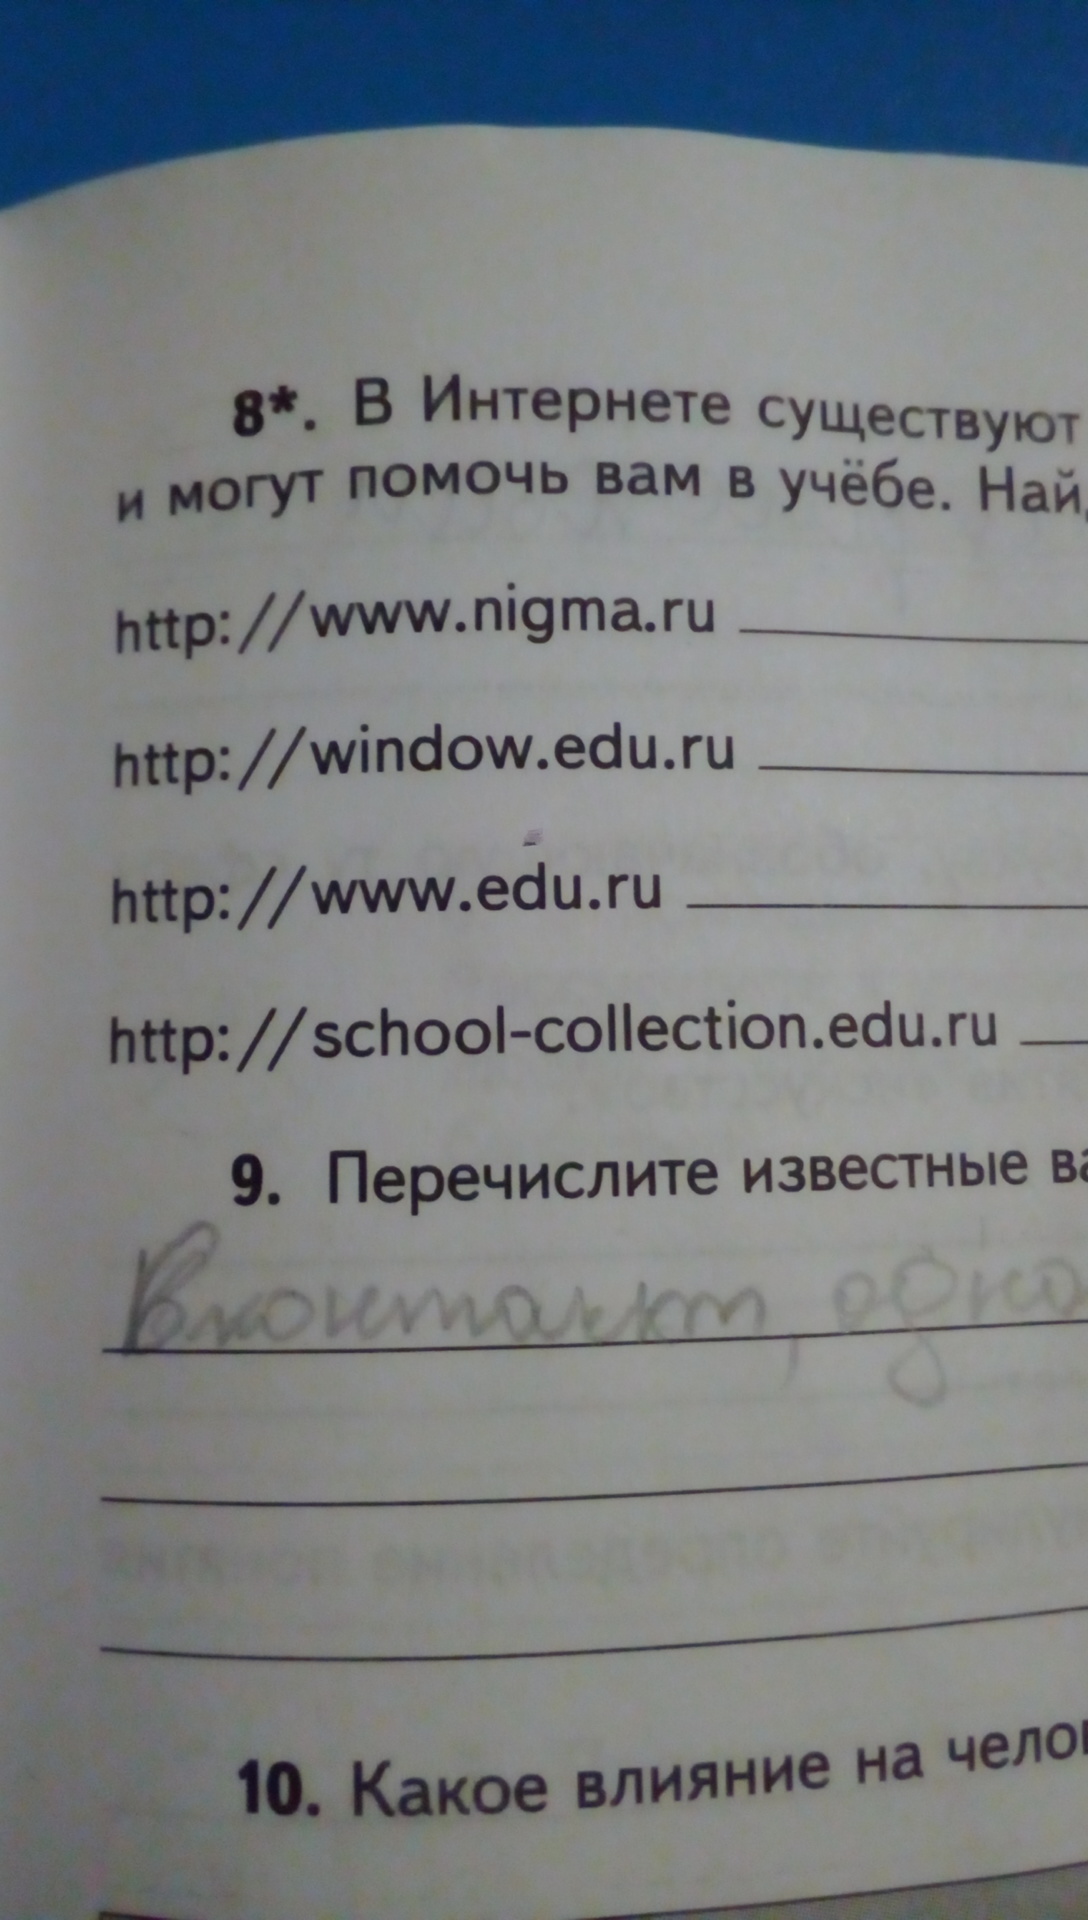 8*. В Интернете существуют
и могут помочь вам в учёбе. Най
http://www.nigma.ru
http://window.edu.ru
http://www.edu.ru
http://school-collection.edu.ru
9. Перечислите известные ва
Вконтакт, одно
10. Какое влияние на чело